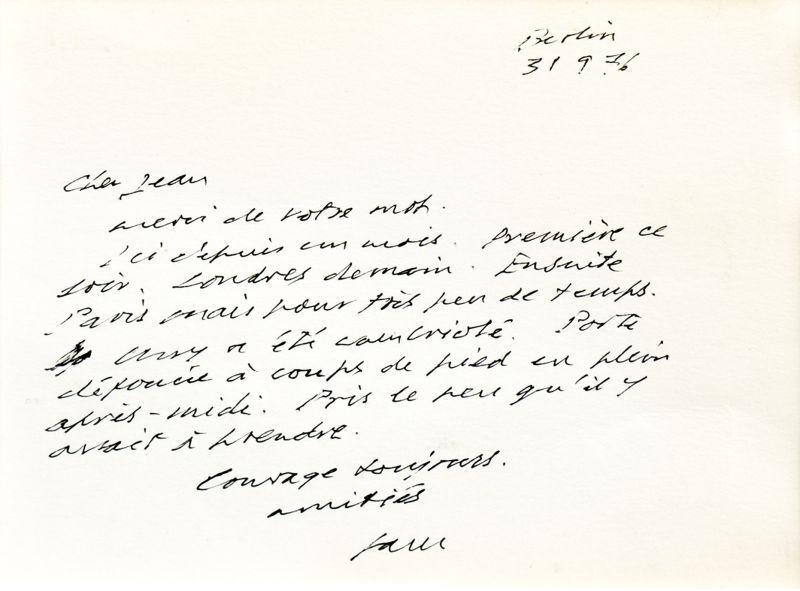 Berlin
31 9 76
Cher Jean
merci de votre mot.
Ici depuis un mois. Première ce
soir. Londres demain. Ensuite
Paris mais pour très peu de temps.
Ussy a été cambriolé. Porte
défoncée à coups de pied en plein
après-midi. Pris le peu qu'il y
avait à prendre.
Courage toujours.
amitiés
Sam